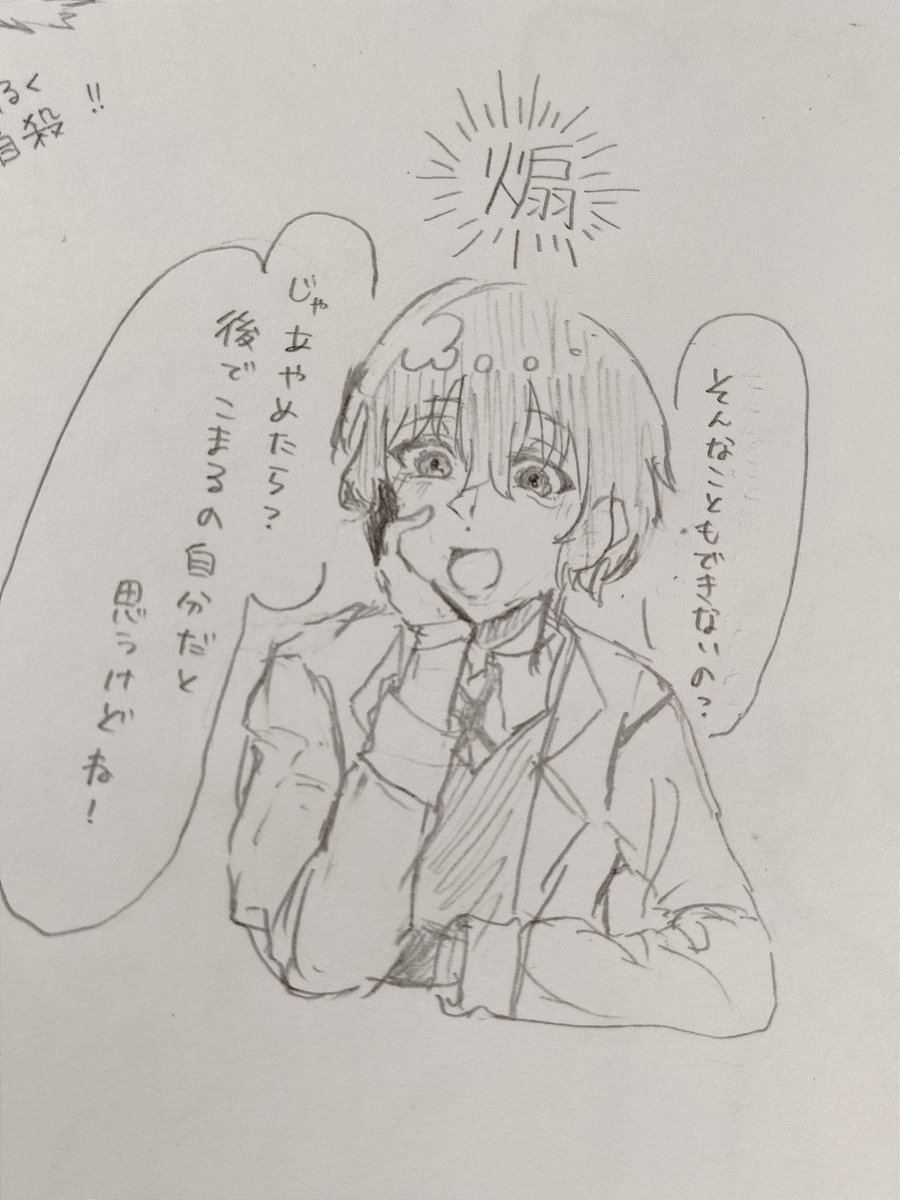 煽
そんなこともできないの?
じゃあやめたら?
後でこまるの自分だと
思うけどね!
るく
自殺!!